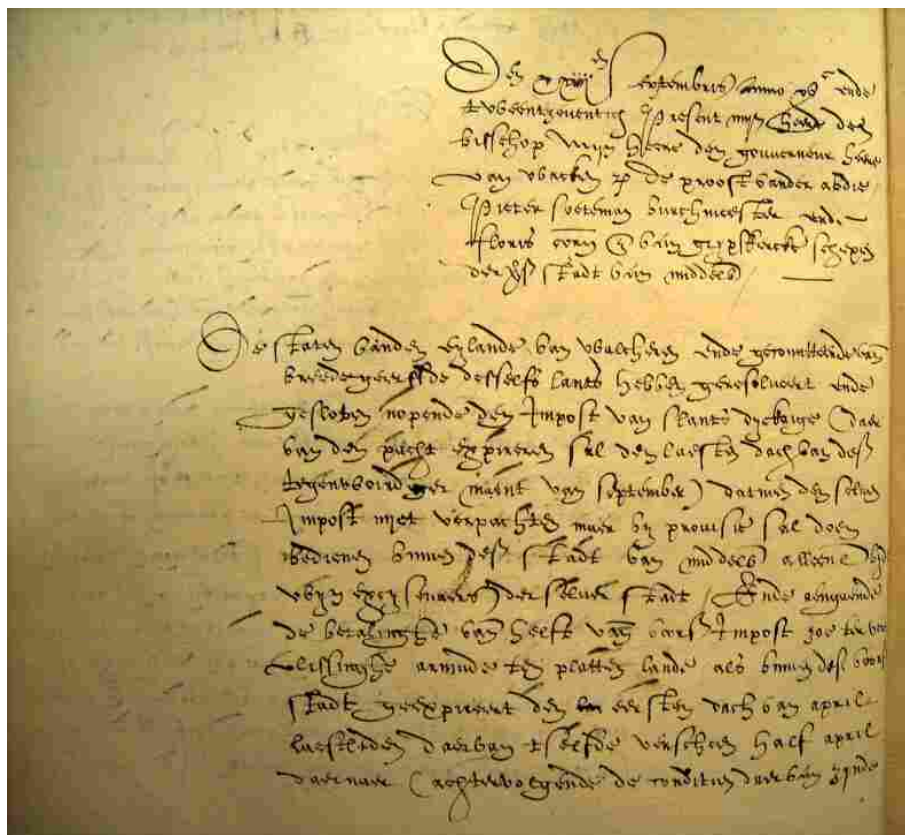 Den xxiiij en Septembris Anno xvc ende
tweentzeventich Present mijn heere den
bisschop mijn heere den gouverneur heere
van wacken de proost vander abdie
Pieter soeteman burchmeester ende
floris van grijpskercke schepen
der stadt van middelb
De staten vanden eylande van walcheren ende gecomitteerde van
breedegeerffde desselfs lants hebben geresolveert ende
gesloten nopende den Impost van slants dyckaige (daer
van den pacht expireren sal den laesten dach van deser
tegenwoirdiger maent van september) datmen den selven
Impost nijet verpachten maer by provisie sal doen
bedienen binnen deser stadt van middelb alleenl
wijn exzijsenaers der selver stadt / Ende aengaende
de betalinghe van helft van voirs Impost zoe ter
vlissinghe armude ten platten lande als binnen deser voirs
stadt geexpireert den eersten dach van april
laestleden daervan tselfde verscheen half april
daernaer (achtervolgende de conditien daervan zijnde